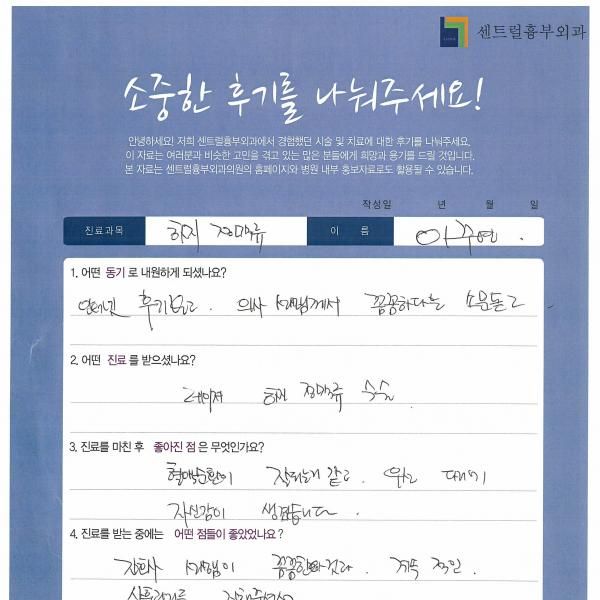 센트럴흉부외과
소중한 후기를 나눠주세요!
안녕하세요! 저희 센트럴흉부외과에서 경험했던 시술 및 치료에 대한 후기를 나눠주세요.
이 자료는 여러분과 비슷한 고민을 겪고 있는 많은 분들에게 희망과 용기를 드릴 것입니다.
본 자료는 센트럴흉부외과의원의 홈페이지와 병원 내부 홍보자료로도 활용될 수 있습니다.
작성일 년 월 일
진료과목 하지 정맥류 이 름 이주연.
1. 어떤 동기 로 내원하게 되셨나요?
인터넷 후기보고. 의사 선생님께서 꼼꼼하다는 소문듣고
2. 어떤 진료 를 받으셨나요?
레이저 하지 정맥류 수술
3. 진료를 마친 후 좋아진 점 은 무엇인가요?
혈액순환이 잘되는거 같고.
자신감이 생겼습니다.
4. 진료를 받는 중에는 어떤 점들이 좋았었나요?
간호사 선생님이 꼼꼼한